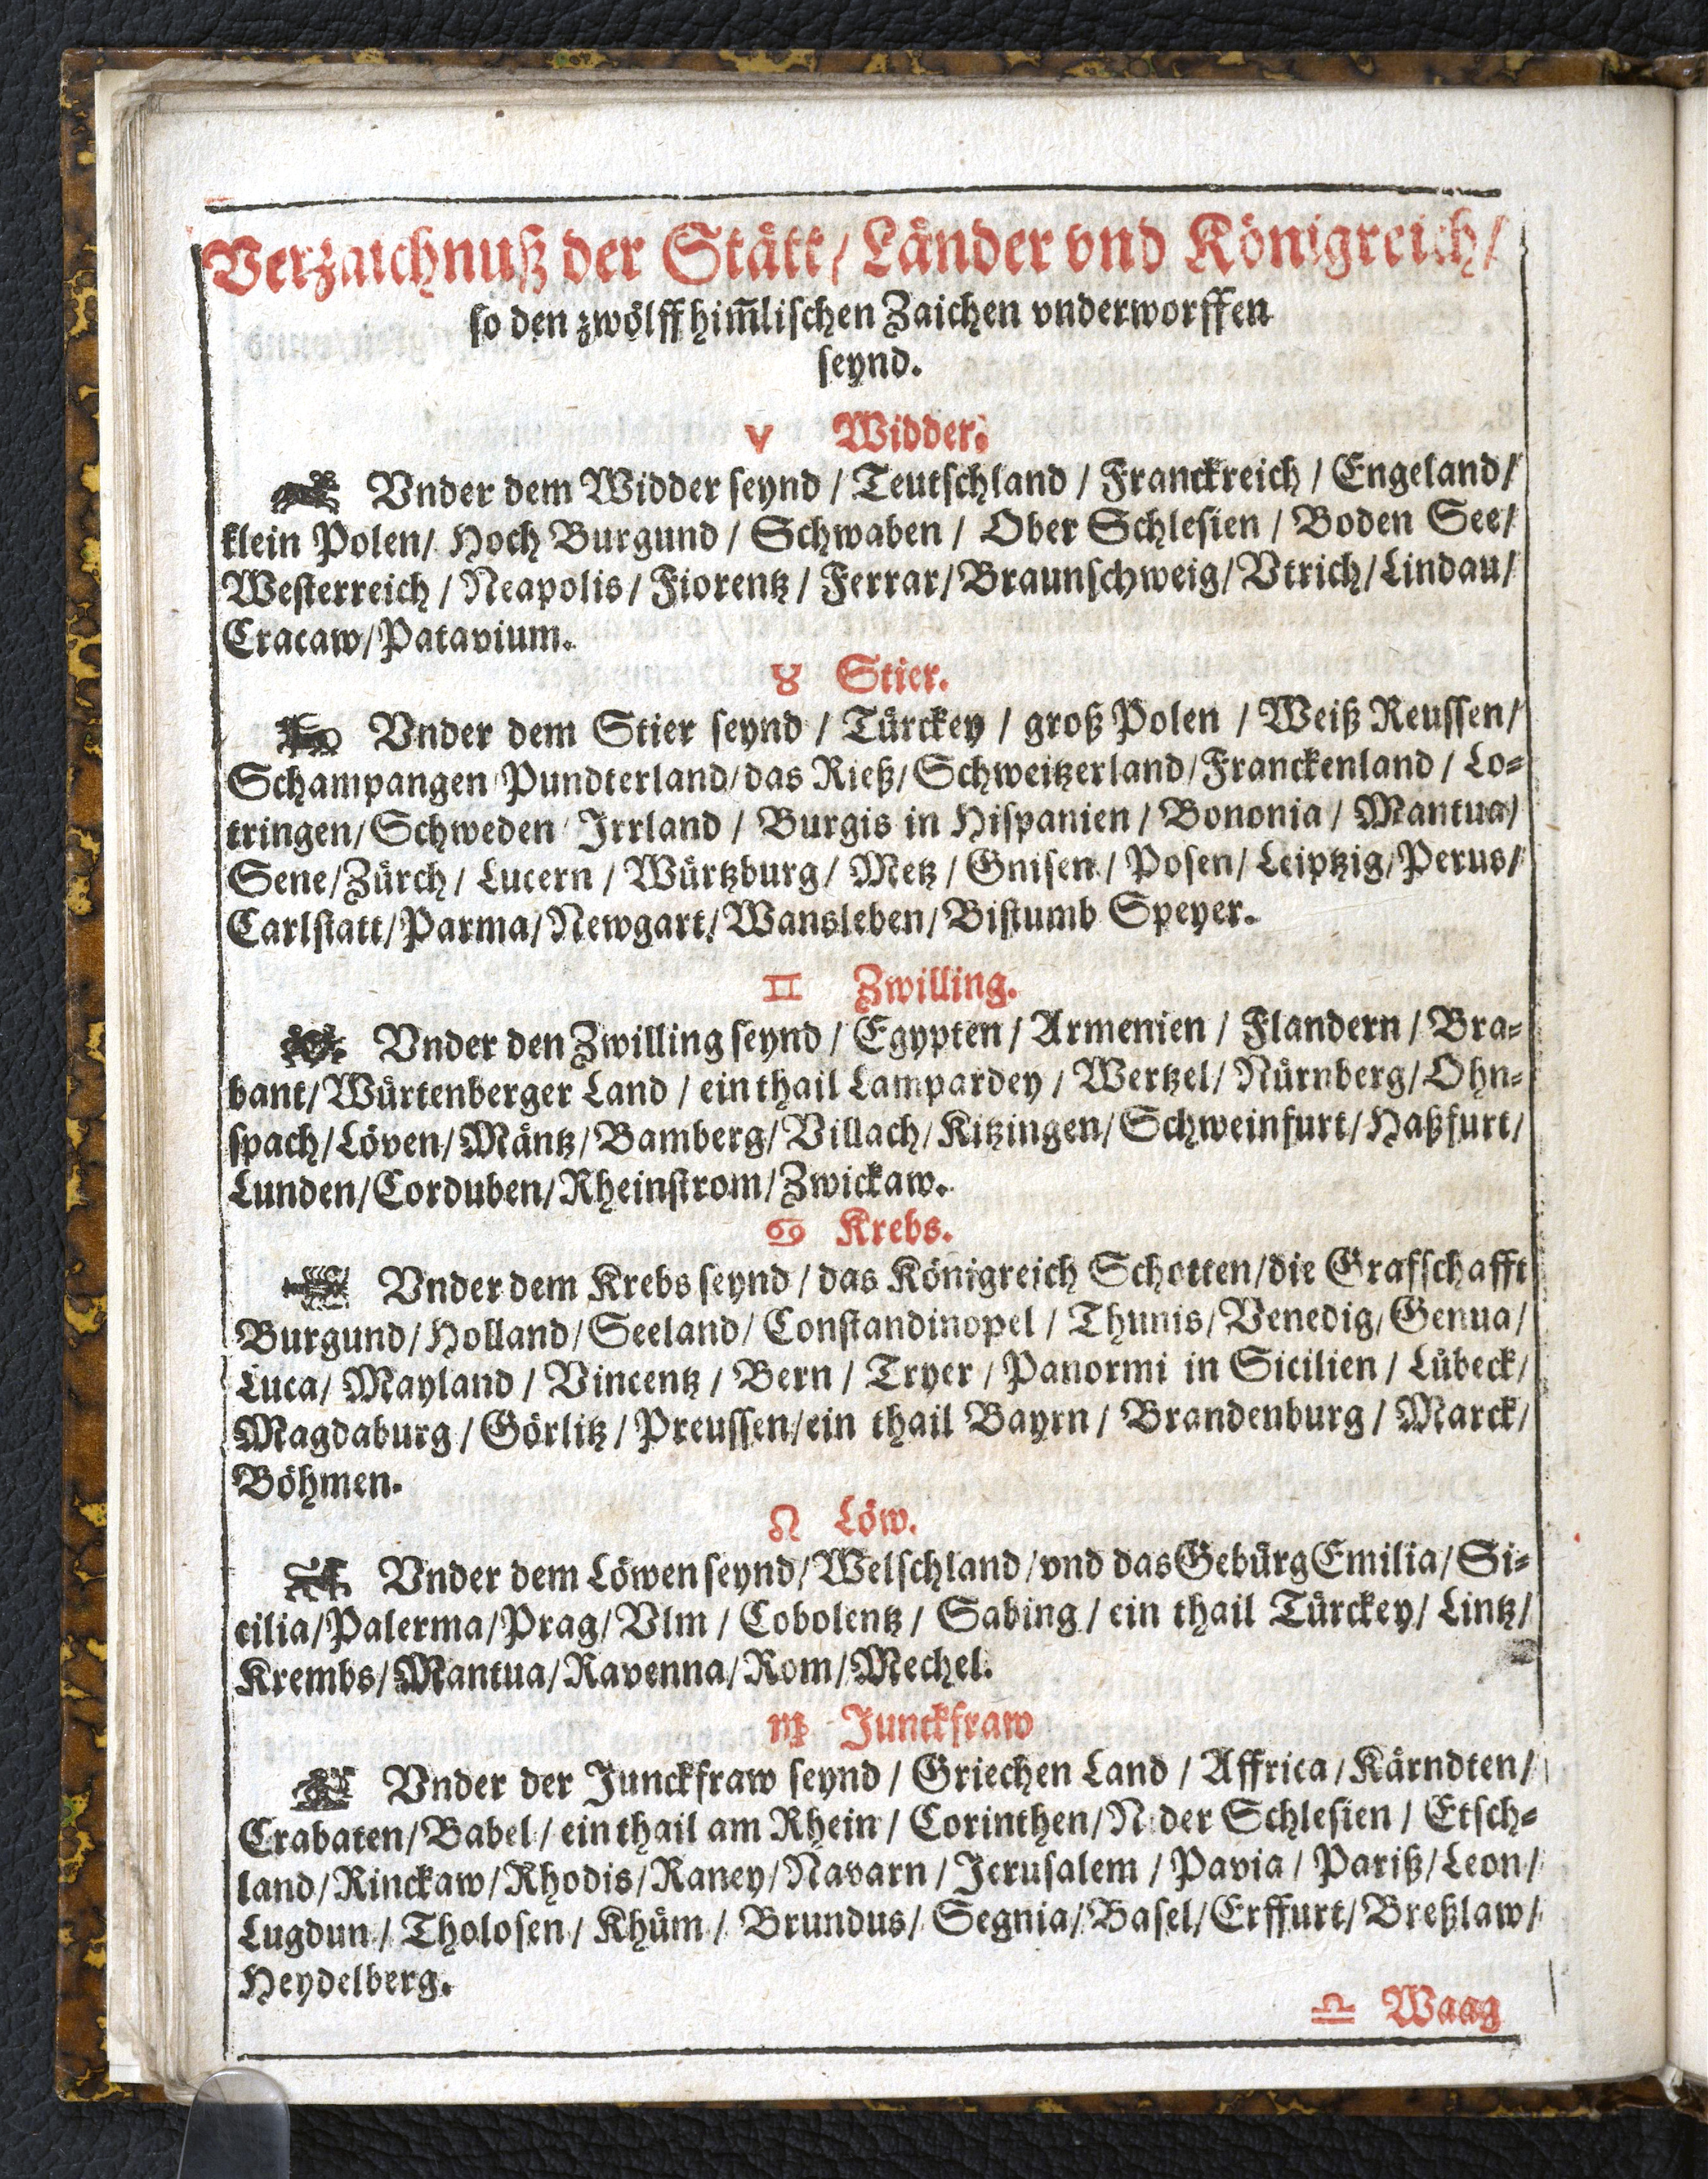 Verzaichnuß der Stätt / Länder vnd Königreich /
so den zwölff him̃lischen Zaichen vnderworffen
seynd.
♈ Widder.
Vnder dem Widder seynd / Teutschland / Franckreich / Engeland /
klein Polen / Hoch Burgund / Schwaben / Ober Schlesien / Boden See /
Westerreich / Neapolis / Fiorentz / Ferrar / Braunschweig / Vtrich / Lindau /
Cracaw / Patavium.
♉ Stier.
Vnder dem Stier seynd / Türckey / groß Polen / Weiß Reussen /
Schampangen / Pundterland / das Rieß / Schweitzerland / Franckenland / Lo-
tringen / Schweden / Irrland / Burgis in Hispanien / Bononia / Mantua /
Sene / Zürch / Lucern / Würtzburg / Metz / Gnisen / Posen / Leiptzig / Perus /
Carlstatt / Parma / Newgart / Wansleben / Bistumb Speyer.
♊ Zwilling.
Vnder den Zwilling seynd / Egypten / Armenien / Flandern / Bra-
bant / Würtenberger Land / ein thail Lampardey / Wertzel / Nürnberg / Ohn-
spach / Löven / Mäntz / Bamberg / Villach / Kitzingen / Schweinfurt / Haßfurt /
Lunden / Corduben / Rheinstrom / Zwickaw.
♋ Krebs.
Vnder dem Krebs seynd / das Königreich Schotten / die Grafschafft
Burgund / Holland / Seeland / Constandinopel / Thunis / Venedig / Genua /
Luca / Mayland / Vincentz / Bern / Tryer / Panormi in Sicilien / Lübeck /
Magdaburg / Görlitz / Preussen / ein thail Bayrn / Brandenburg / Marck /
Böhmen.
♌ Löw.
Vnder dem Löwen seynd / Welschland / vnd das Gebürg Emilia / Si-
cilia / Palerma / Prag / Vlm / Cobolentz / Sabing / ein thail Türckey / Lintz /
Krembs / Mantua / Ravenna / Rom / Mechel.
♍ Junckfraw
Vnder der Junckfraw seynd / Griechen Land / Affrica / Kärndten /
Crabaten / Babel / ein thail am Rhein / Corinthen / N der Schlesien / Etsch-
land / Rinckaw / Rhodis / Raney / Navarn / Jerusalem / Pavia / Pariß / Leon /
Lugdun / Tholosen / Khüm / Brundus / Segnia / Basel / Erffurt / Breßlaw /
Heydelberg.
♎ Waag